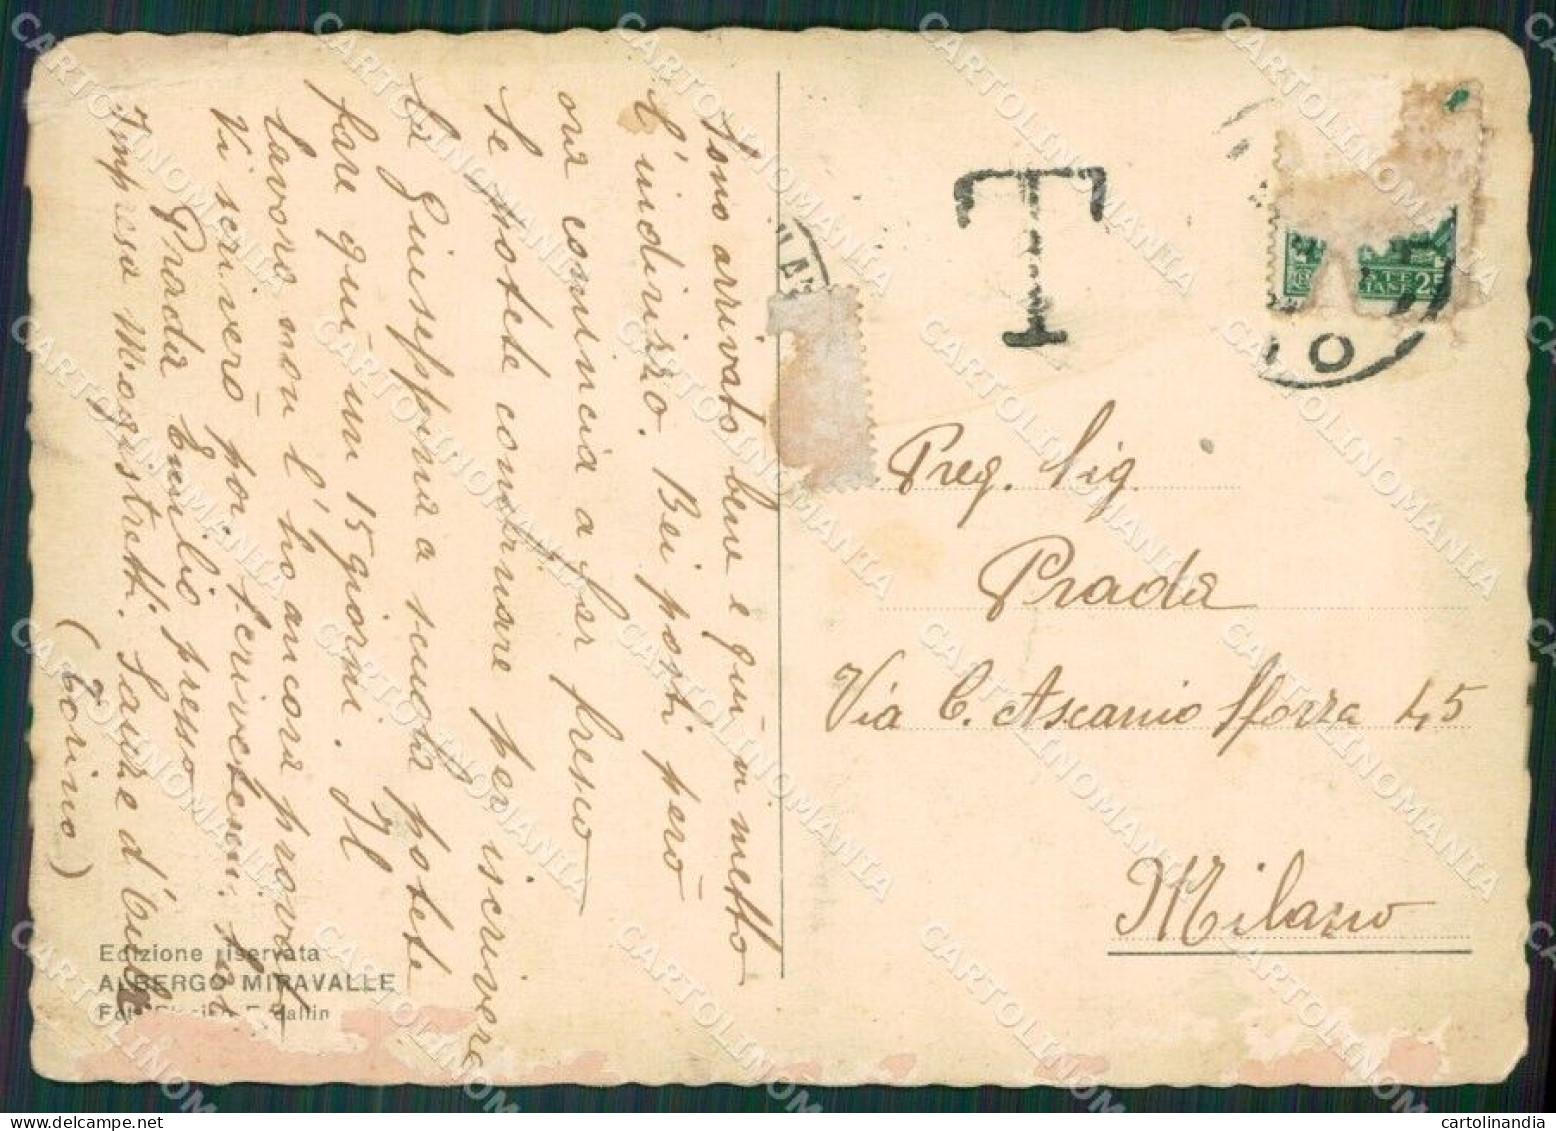 Sono arrivato bene e qui vi metto
l'indirizzo. Bei posti però
ora comincia a far fresco
Se potete combinare per iscrivere
la Giuseppina a scuola potete
fare qui un 15 giorni. Il
lavoro non l'ho ancora provat
Vi scriverò poi, scrivetemi
Prada Emilio presso
Impresa Mogistretti. Sauze d'Oulx
(Torino)
Edizione riservata
ALBERGO MIRAVALLE
T
Preg. Sig.
Prada
Via C. Ascanio Sforza 45
Milano
cartolinandia